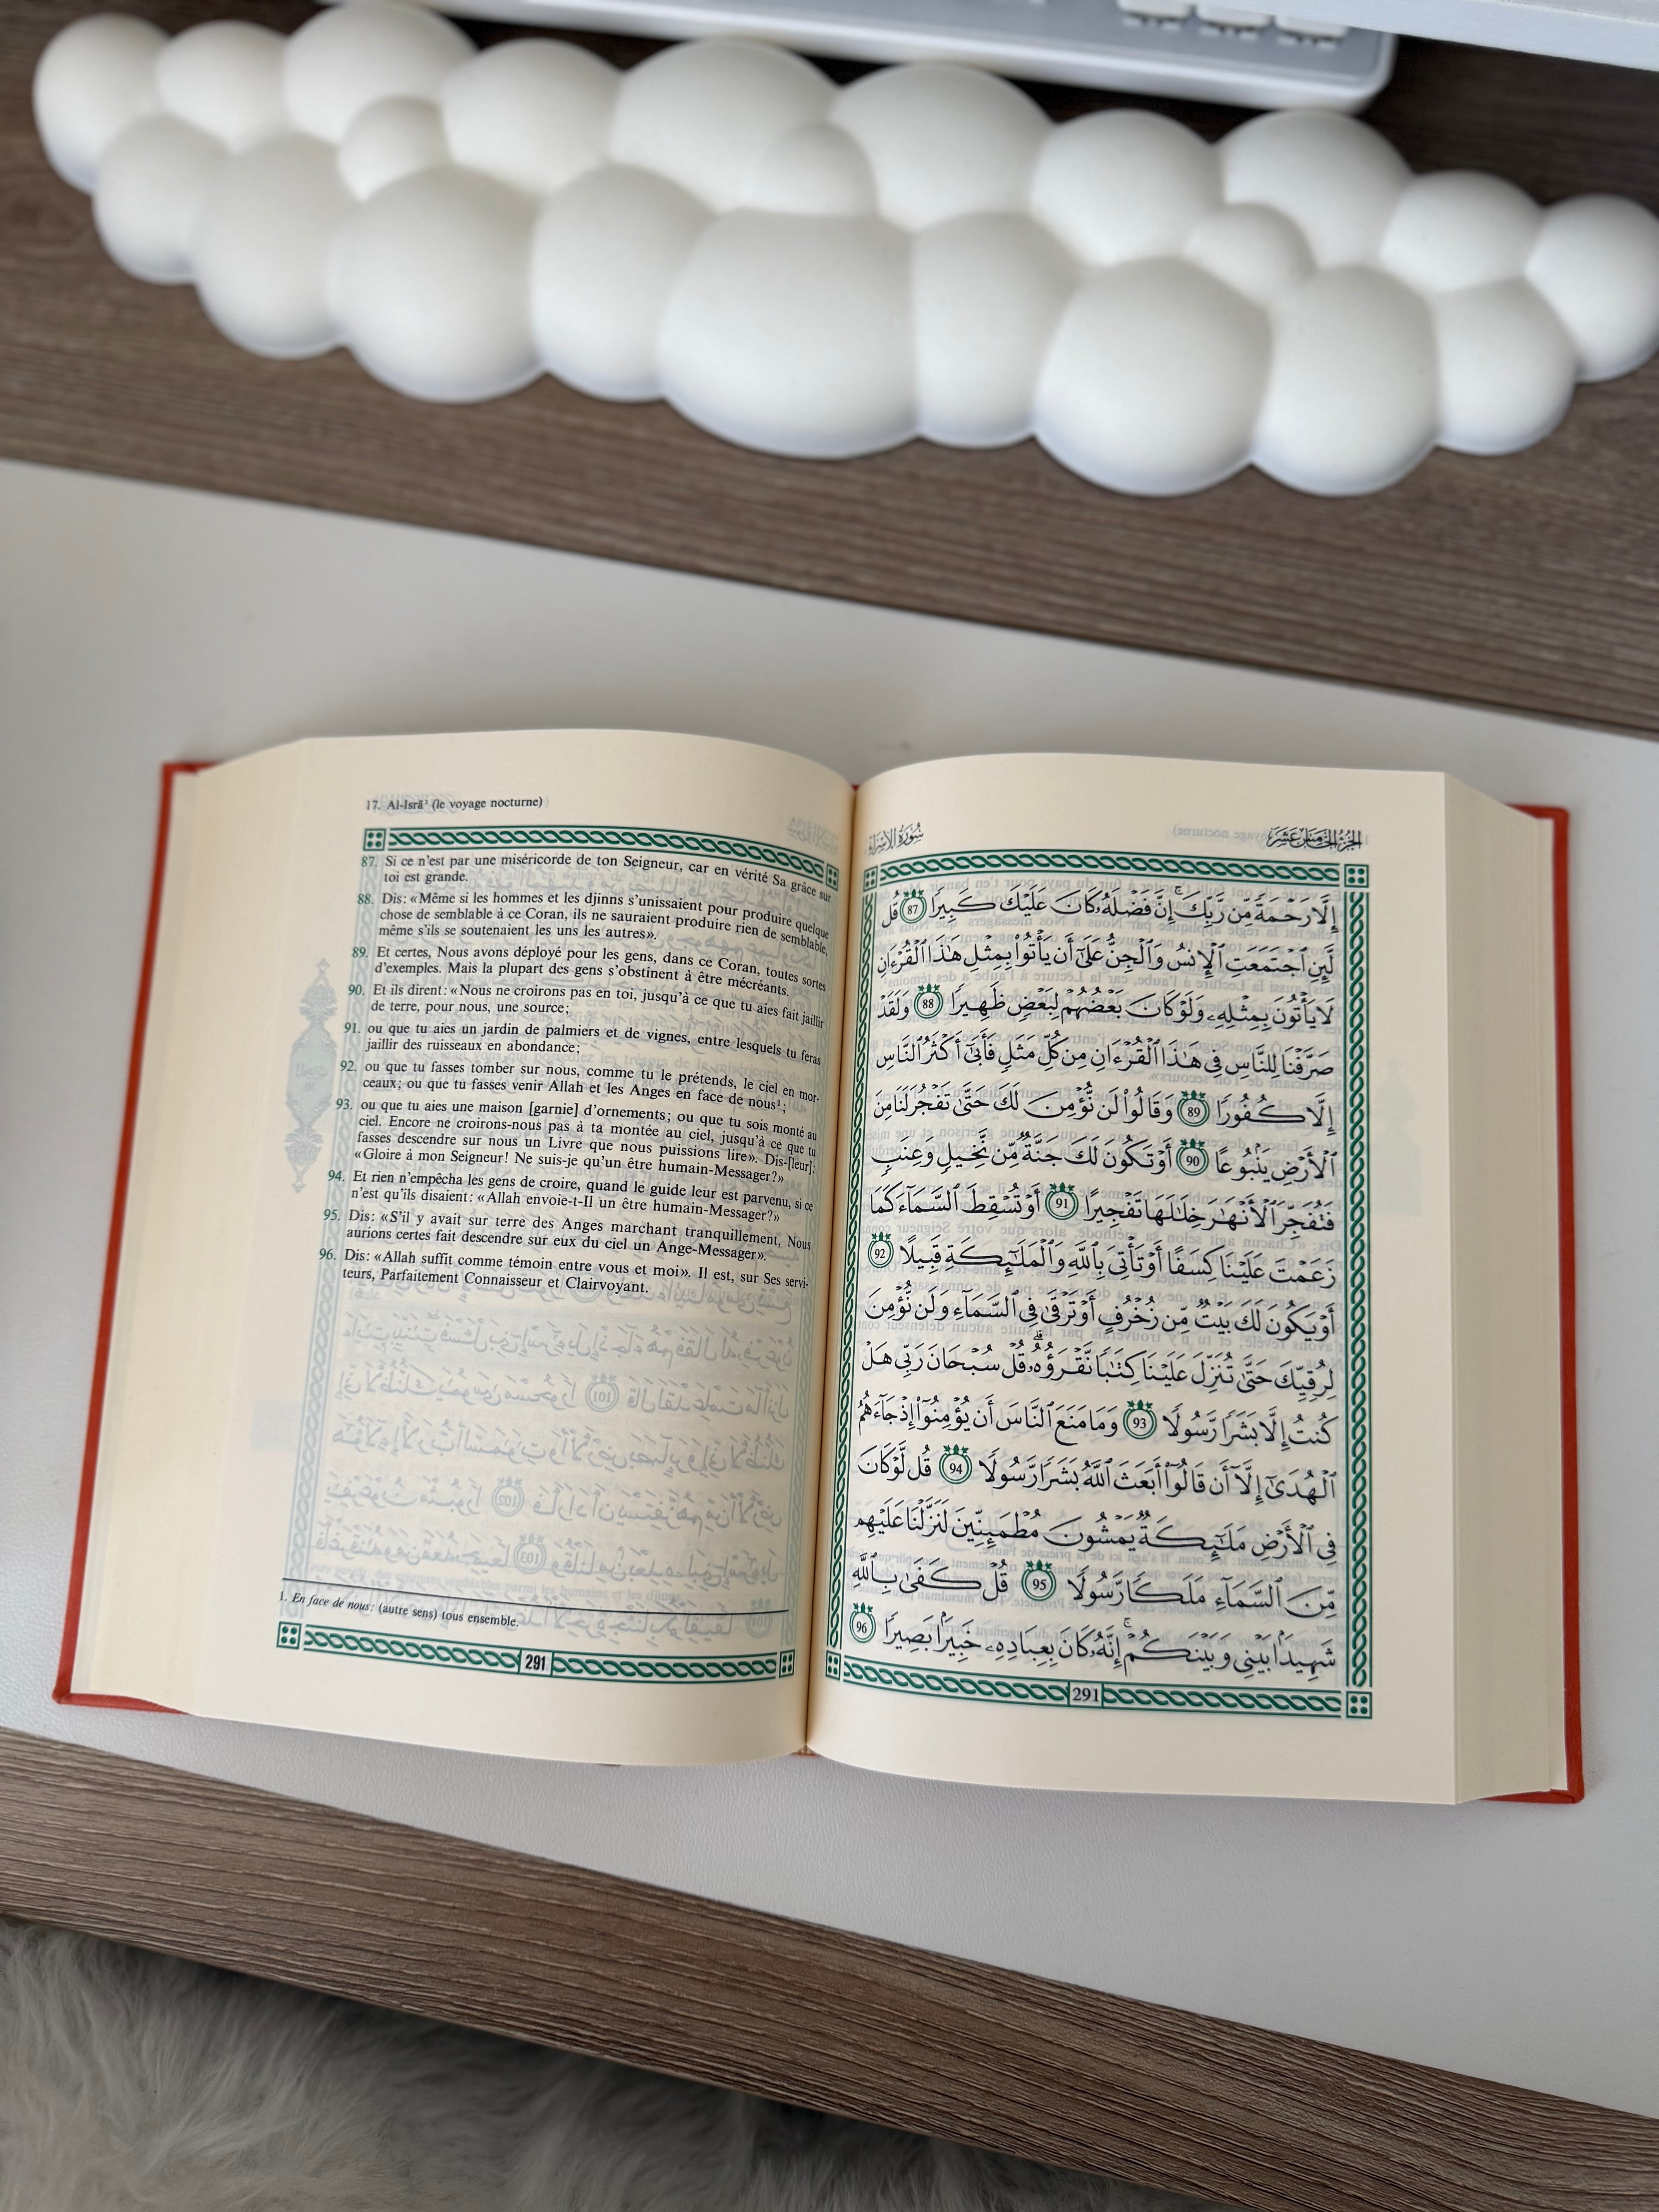 17. Al-Isrā' (le voyage nocturne)
87. Si ce n'est par une miséricorde de ton Seigneur, car en vérité Sa grâce sur
toi est grande.
88. Dis: «Même si les hommes et les djinns s'unissaient pour produire quelque
chose de semblable à ce Coran, ils ne sauraient produire rien de semblable,
même s'ils se soutenaient les uns les autres».
89. Et certes, Nous avons déployé pour les gens, dans ce Coran, toutes sortes
d'exemples. Mais la plupart des gens s'obstinent à être mécréants.
90. Et ils dirent: «Nous ne croirons pas en toi, jusqu'à ce que tu aies fait jaillir
de terre, pour nous, une source;
91. ou que tu aies un jardin de palmiers et de vignes, entre lesquels tu feras
jaillir des ruisseaux en abondance;
92. ou que tu fasses tomber sur nous, comme tu le prétends, le ciel en mor-
ceaux; ou que tu fasses venir Allah et les Anges en face de nous¹;
93. ou que tu aies une maison [garnie] d'ornements; ou que tu sois monté au
ciel. Encore ne croirons-nous pas à ta montée au ciel, jusqu'à ce que tu
fasses descendre sur nous un Livre que nous puissions lire». Dis-[leur]:
«Gloire à mon Seigneur! Ne suis-je qu'un être humain-Messager?»
94. Et rien n'empêcha les gens de croire, quand le guide leur est parvenu, si ce
n'est qu'ils disaient: «Allah envoie-t-Il un être humain-Messager?»
95. Dis: «S'il y avait sur terre des Anges marchant tranquillement, Nous
aurions certes fait descendre sur eux du ciel un Ange-Messager».
96. Dis: «Allah suffit comme témoin entre vous et moi». Il est, sur Ses servi-
teurs, Parfaitement Connaisseur et Clairvoyant.
1. En face de nous: (autre sens) tous ensemble.
291
الجزء الخامس عشر
سورة الإسراء
إِلَّا رَحْمَةً مِّن رَّبِّكَ ۚ إِنَّ فَضْلَهُۥ كَانَ عَلَيْكَ كَبِيرًا 87 قُل
لَّئِنِ ٱجْتَمَعَتِ ٱلْإِنسُ وَٱلْجِنُّ عَلَىٰٓ أَن يَأْتُوا۟ بِمِثْلِ هَٰذَا ٱلْقُرْءَانِ
لَا يَأْتُونَ بِمِثْلِهِۦ وَلَوْ كَانَ بَعْضُهُمْ لِبَعْضٍ ظَهِيرًا 88 وَلَقَدْ
صَرَّفْنَا لِلنَّاسِ فِى هَٰذَا ٱلْقُرْءَانِ مِن كُلِّ مَثَلٍ فَأَبَىٰٓ أَكْثَرُ ٱلنَّاسِ
إِلَّا كُفُورًا 89 وَقَالُوا۟ لَن نُّؤْمِنَ لَكَ حَتَّىٰ تَفْجُرَ لَنَا مِنَ
ٱلْأَرْضِ يَنۢبُوعًا 90 أَوْ تَكُونَ لَكَ جَنَّةٌ مِّن نَّخِيلٍ وَعِنَبٍ
فَتُفَجِّرَ ٱلْأَنْهَٰرَ خِلَٰلَهَا تَفْجِيرًا 91 أَوْ تُسْقِطَ ٱلسَّمَآءَ كَمَا
زَعَمْتَ عَلَيْنَا كِسَفًا أَوْ تَأْتِىَ بِٱللَّهِ وَٱلْمَلَٰٓئِكَةِ قَبِيلًا 92
أَوْ يَكُونَ لَكَ بَيْتٌ مِّن زُخْرُفٍ أَوْ تَرْقَىٰ فِى ٱلسَّمَآءِ وَلَن نُّؤْمِنَ
لِرُقِيِّكَ حَتَّىٰ تُنَزِّلَ عَلَيْنَا كِتَٰبًا نَّقْرَؤُهُۥ ۗ قُلْ سُبْحَانَ رَبِّى هَلْ
كُنتُ إِلَّا بَشَرًا رَّسُولًا 93 وَمَا مَنَعَ ٱلنَّاسَ أَن يُؤْمِنُوٓا۟ إِذْ جَآءَهُمُ
ٱلْهُدَىٰٓ إِلَّآ أَن قَالُوٓا۟ أَبَعَثَ ٱللَّهُ بَشَرًا رَّسُولًا 94 قُل لَّوْ كَانَ
فِى ٱلْأَرْضِ مَلَٰٓئِكَةٌ يَمْشُونَ مُطْمَئِنِّينَ لَنَزَّلْنَا عَلَيْهِم
مِّنَ ٱلسَّمَآءِ مَلَكًا رَّسُولًا 95 قُلْ كَفَىٰ بِٱللَّهِ
شَهِيدًۢا بَيْنِى وَبَيْنَكُمْ ۚ إِنَّهُۥ كَانَ بِعِبَادِهِۦ خَبِيرًۢا بَصِيرًا 96
291